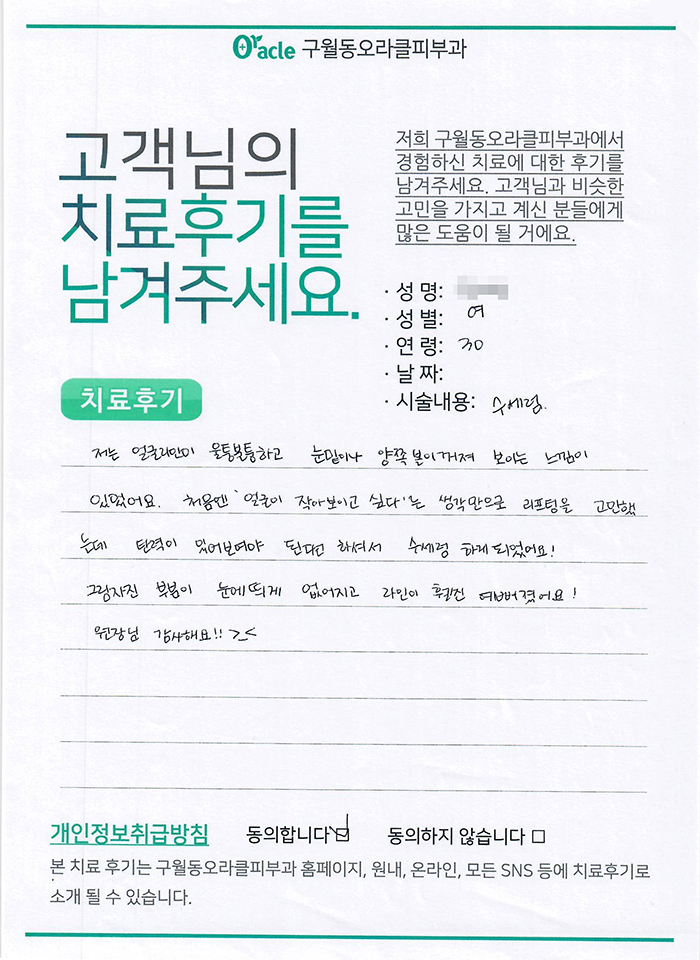 Oracle 구월동오라클피부과
고객님의
치료후기를
남겨주세요.
저희 구월동오라클피부과에서
경험하신 치료에 대한 후기를
남겨주세요. 고객님과 비슷한
고민을 가지고 계신 분들에게
많은 도움이 될 거에요.
· 성 명:
· 성 별: 여
· 연 령: 30
· 날 짜:
· 시술내용: 수세럼.
치료후기
저는 얼굴라인이 울퉁불퉁하고 눈밑이나 양쪽 볼이 꺼져 보이는 느낌이
있었어요. 처음엔 '얼굴이 작아보이고 싶다'는 생각만으로 리프팅을 고민했
는데 탄력이 있어보여야 된다고 하셔서 수세럼 하게되었어요!
그림자진 부분이 눈에띄게 없어지고 라인이 훨씬 예뻐졌어요!
원장님 감사해요!! >_<
개인정보취급방침 동의합니다 ☑ 동의하지 않습니다 □
본 치료 후기는 구월동오라클피부과 홈페이지, 원내, 온라인, 모든 SNS 등에 치료후기로
소개 될 수 있습니다.